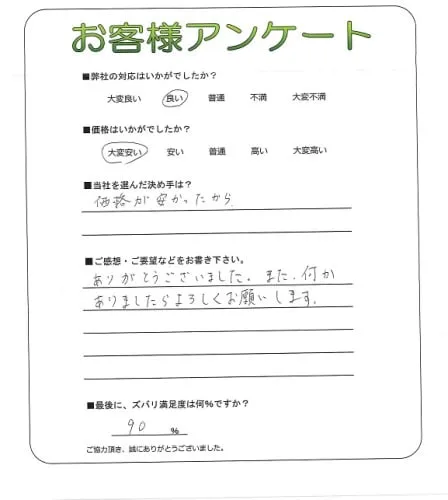 お客様アンケート
■弊社の対応はいかがでしたか？
大変良い 良い 普通 不満 大変不満
■価格はいかがでしたか？
大変安い 安い 普通 高い 大変高い
■当社を選んだ決め手は？
価格が安かったから
■ご感想・ご要望などをお書き下さい。
ありがとうございました。また、付か
ありましたらよろしくお願いします。
■最後に、ズバリ満足度は何%ですか？
90 %
ご協力頂き、誠にありがとうございました。